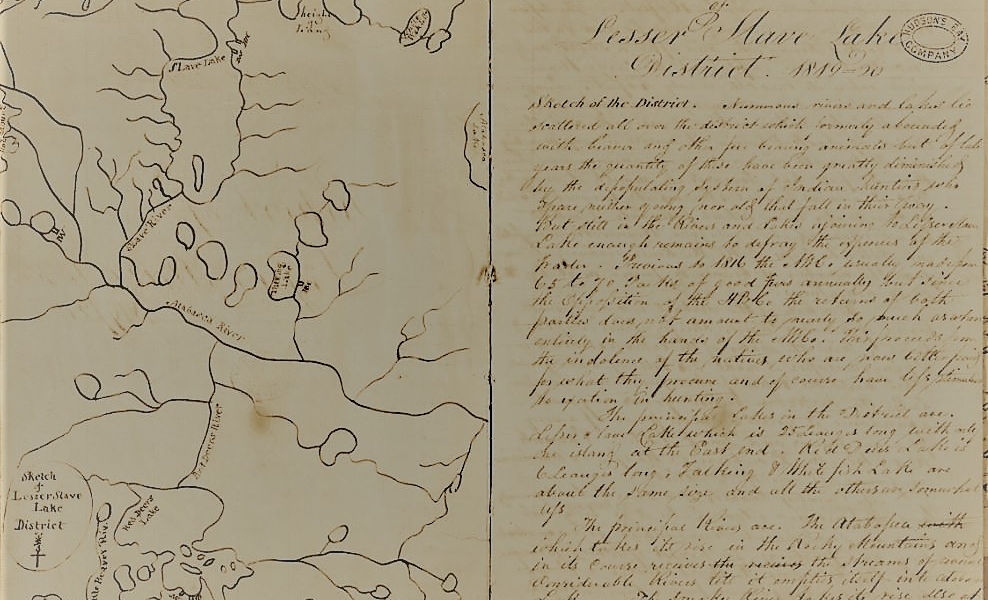 height
of
Land
Slave Lake
Slave River
Atabasca River
Red Deers River
Red Deers
Lake
Sketch
of
Lesser Slave
Lake
District
of
Lesser Slave Lake
District. 1819=20
HUDSON'S BAY
COMPANY
Sketch of the District. Numerous rivers and lakes lie
scattered all over the district which formerly abounded
with beaver and other fur bearing animals but of late
years the quantity of these have been greatly diminished
by the depopulating system of Indian hunting who
spare neither young nor old that fall in their way.
But still in the Rivers and Lakes
Lake enough remains to defray the expences of the
trader. Previous to 1816 the NWCo. usually made from
65 to 70 Packs of good furs annually but since
the Opposition of the HBCo the returns of both
parties does not amount to nearly so much as when
entirely in the hands of the NWCo. This proceeds from
the indolence of the natives who are now better paid
for what they procure and of course have less stimulus
to exertion in hunting.
The principal Lakes in the District are.
Lesser Slave Lake which is 25 Leagues long with only
one island at the East end. Red Deers Lake is
6 Leagues long. & White fish Lake are
about the same size and all the others are somewhat
less
The principal Rivers are. The Atabasca with
which takes its rise in the Rocky Mountains and
in its Course receives the the streams of several
Considerable Rivers till it empties itself into